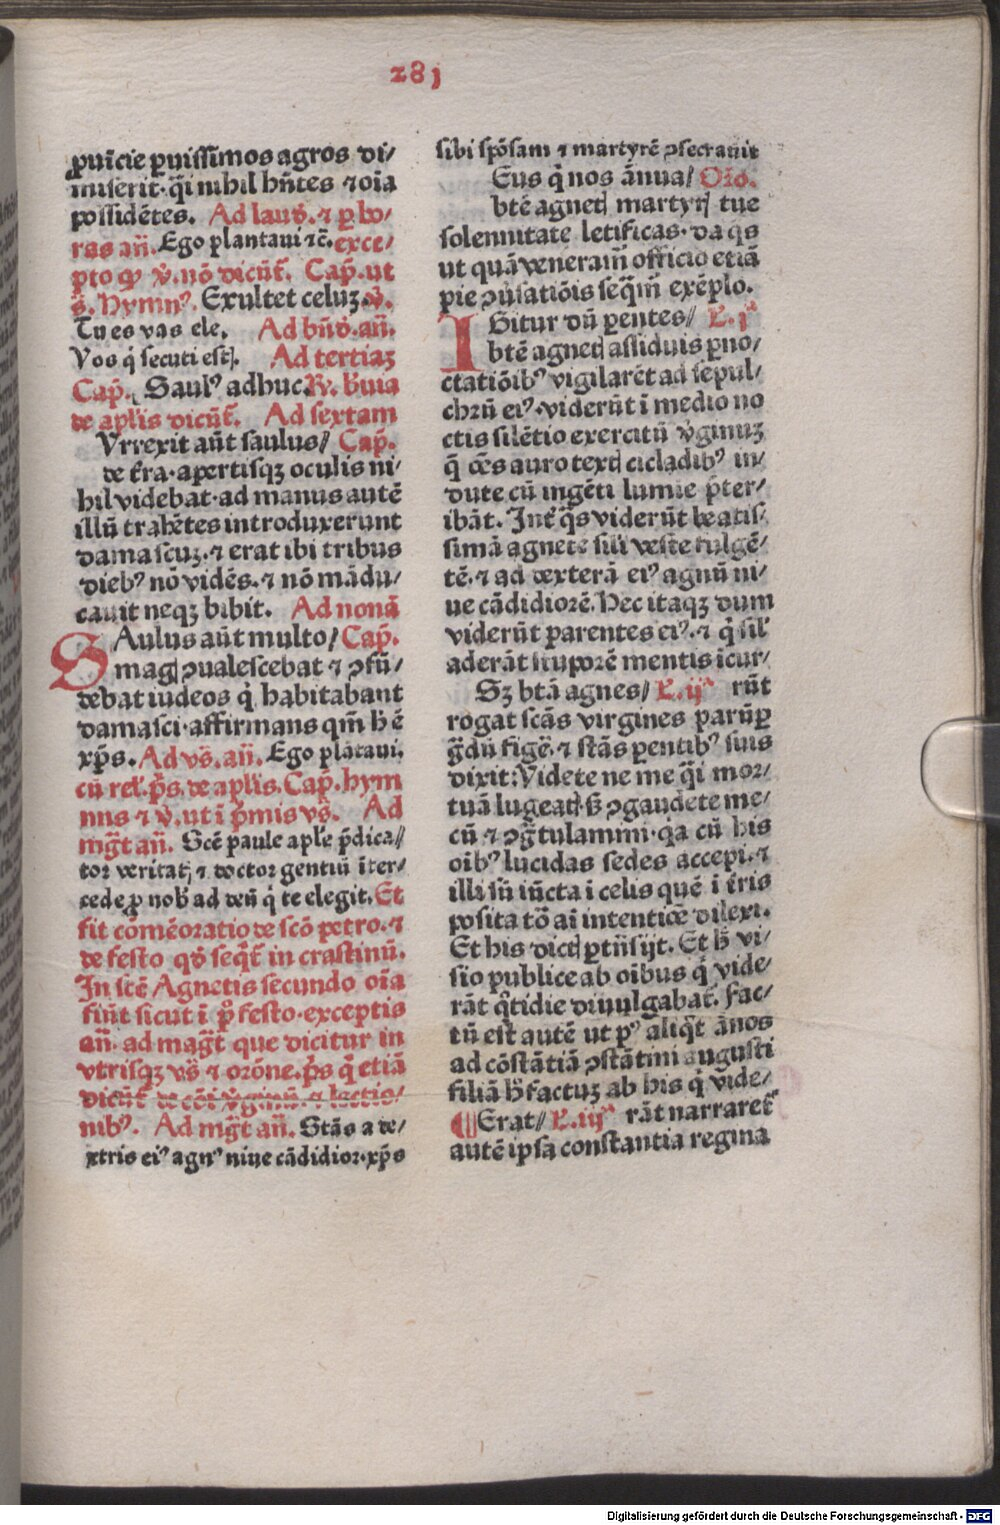 281
ꝓuīcie ꝑuissimos agros di/
miserit· q̄i nihil hn̄tes ⁊ oīa
possidētes. Ad laud̄. ⁊ ꝑ ho/
ras an̄. Ego plantaui ⁊c̄. exce/
pto ꝙ v̄. nō dicūt᷑. Cap̄. ut
s̄. Hymnꝰ. Exultet celuꝫ. v̄.
Tu es vas ele. Ad bn̄d̄. an̄.
Vos q̇ secuti estꝭ. Ad tertiaꝫ
Cap̄. Saulꝰ adhuc. R̄. b̄uia
de apl̄is dicūt᷑. Ad sextam
Vrrexit aūt saulus/ Cap̄.
de t̄ra· apertisqꝫ oculis ni/
hil videbat· ad manus autē
illū trahētes introduxerunt
damascuꝫ. ⁊ erat ibi tribus
diebꝰ nō vidēs. ⁊ nō mādu/
cauit neqꝫ bibit. Ad nonā
SAulus aūt multo/ Cap̄.
magꝭ ꝯualescebat ⁊ ꝯfū/
debat iudeos q̇ habitabant
damasci· affirmans qm̄ h̄ ē
xp̄s. Ad vs̄. an̄. Ego plātaui.
cū rel̄. p̄s. de apl̄is. Cap̄. hym
nus ⁊ v̄. ut ī p̄mis vs̄. Ad
mḡt an̄. Scē paule apl̄e p̄dica//
tor veritatꝭ ⁊ doctor gentiū īter/
cede ꝓ nob̄ ad deū q̇ te elegit. Et
fit cōmēoratio de scō petro. ⁊
de festo qd̄ seq̄t᷑ in crastinū.
In scē Agnetis secundo oīa
fiūt sicut ī pº festo· exceptis
an̄. ad magt̄ que dicitur in
vtrisqꝫ vs̄ ⁊ orōne. p̄s q̄ etiā
dicūt᷑ de cōi v̄ginū. ⁊ lectio/
nibꝰ. Ad mḡt an̄. Stās a de/
xtris eiꝰ agnꝰ niue cādidior· xp̄s
sibi spōsam ⁊ martyrē ꝯsecrauit
Eus q̇ nos ānua/ Orō.
btē agnetꝭ martyrꝭ tue
solennitate letificas· da q̄s
ut quā veneramr̄ officio etiā
pie ꝯūsatiōis seq̄mr̄ exēplo.
IGitur dū ꝑentes/ L. jᵃ
btē agnetꝭ assiduis ꝑno/
ctatiōibꝰ vigilarēt ad sepul/
chrū eiꝰ. viderūt ī medio no
ctis silētio exercitū v̄ginuꝫ
q̄ oēs auro textꝭ cicladibꝰ in/
dute cū ingēti lumīe p̄ter/
ibāt. Int̄ q̄s viderūt beatis/
simā agnetē sil̄i veste fulgē/
tē. ⁊ ad dexterā eiꝰ agnū ni/
ue cādidiorē. Hec itaqꝫ dum
viderūt parentes eiꝰ. ⁊ q̇ sil̄
aderāt stuporē mentis īcur/
Sꝫ btā agnes/ L. ijᵃ rūt
rogat scās virgines parūꝑ
g̈dū figē. ⁊ stās ꝑentibꝰ suis
dixit: Videte ne me q̄i mor/
tuā lugeatꝭ. sꝫ ꝯgaudete me/
cū ⁊ ꝯg̈tulamini· qa cū his
oībꝰ lucidas sedes accepi. ⁊
illi sū iūcta ī celis quē ī t̄ris
posita tō ai intentiōe dilexi.
Et his dictꝭ ꝑtūsijt. Et h̄ vi/
sio publice ab oībus q̇ vide/
rāt q̊tidie diuulgabat᷑. Fac/
tū est autē ut pꝰ aliqt̄ ānos
ad cōstātiā ꝯstātini augusti
filiā h̄ factuꝫ ab his q̇ vide/
Erat// L. iijᵃ rāt narraret᷑
autē ipsa constantia regina
Digitalisierung gefördert durch die Deutsche Forschungsgemeinschaft - DFG